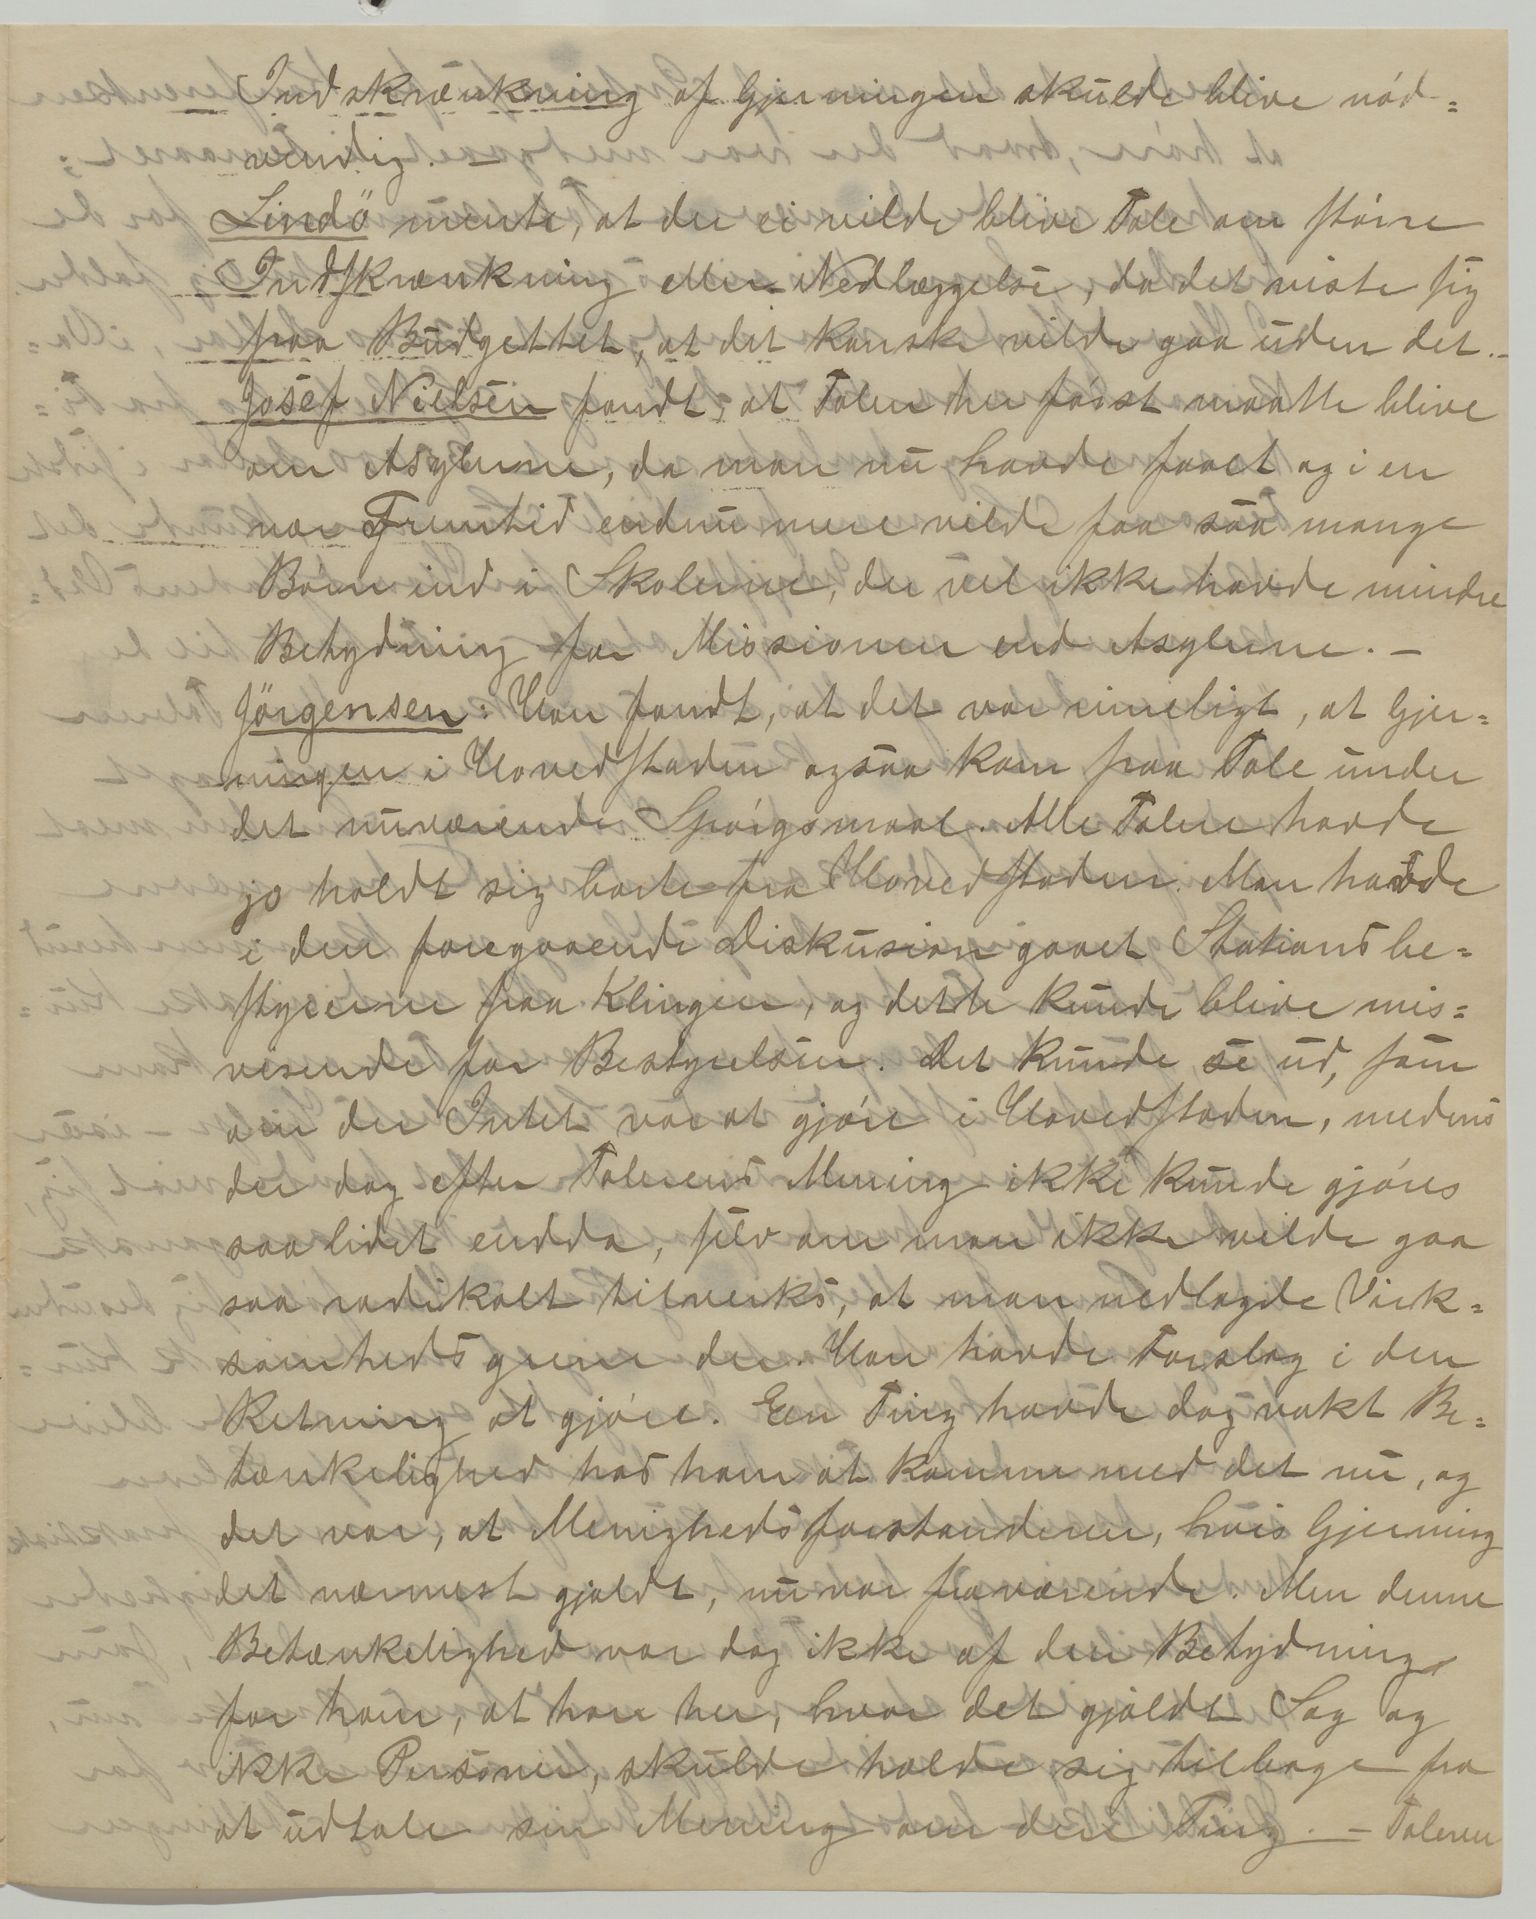 Indskrænkning af Gjerningen skulde blive nød=
vendig. —
Lindö mente, at der ei vilde blive Tale om større
Indskrænkning eller Nedlæggelse, da det viste sig
paa Budgettet, at det kanske vilde gaa uden det. —
Josef Nielsen fandt, at Talen her først maatte blive
om Asylerne, da man nu havde faaet og i en
nær Fremtid endnu mere vilde faa saa mange
Børn ind i Skolerne, der vel ikke havde mindre
Betydning for Missionen end Asylerne. —
Jörgensen: Han fandt, at det var rimeligt, at Gjer=
ningen i Hovedstaden ogsaa kom paa Tale under
det nuværende Spørgsmaal. Alle Talere havde
jo holdt sig borte fra Hovedstaden. Man havde
i den foregaaende Diskusion gaaet Stationsbe=
styrerne paa Klingen, og dette kunde blive mis=
visende for Bestyrelsen. Det kunde se ud, som
om der Intet var at gjøre i Hovedstaden, medens
der dog efter Talerens Mening ikke kunde gjøres
saa lidet endda, selv om man ikke vilde gaa
saa radikalt tilverks, at man nedlagde Virk=
somhedsgrene der. Han havde Forslag i den
Retning at gjøre. Een Ting havde dog vakt Be=
tænkelighed hos ham at komme med det nu, og
det var, at Menighedsforstanderen, hvis Gjerning
det nærmest gjaldt, nu var fraværende. Men denne
Betænkelighed var dog ikke af den Betydning
for ham, at han her, hvor det gjaldt Sag og
ikke Personer, skulde holde sig tilbage fra
at udtale sin Mening om den Ting. — Taleren